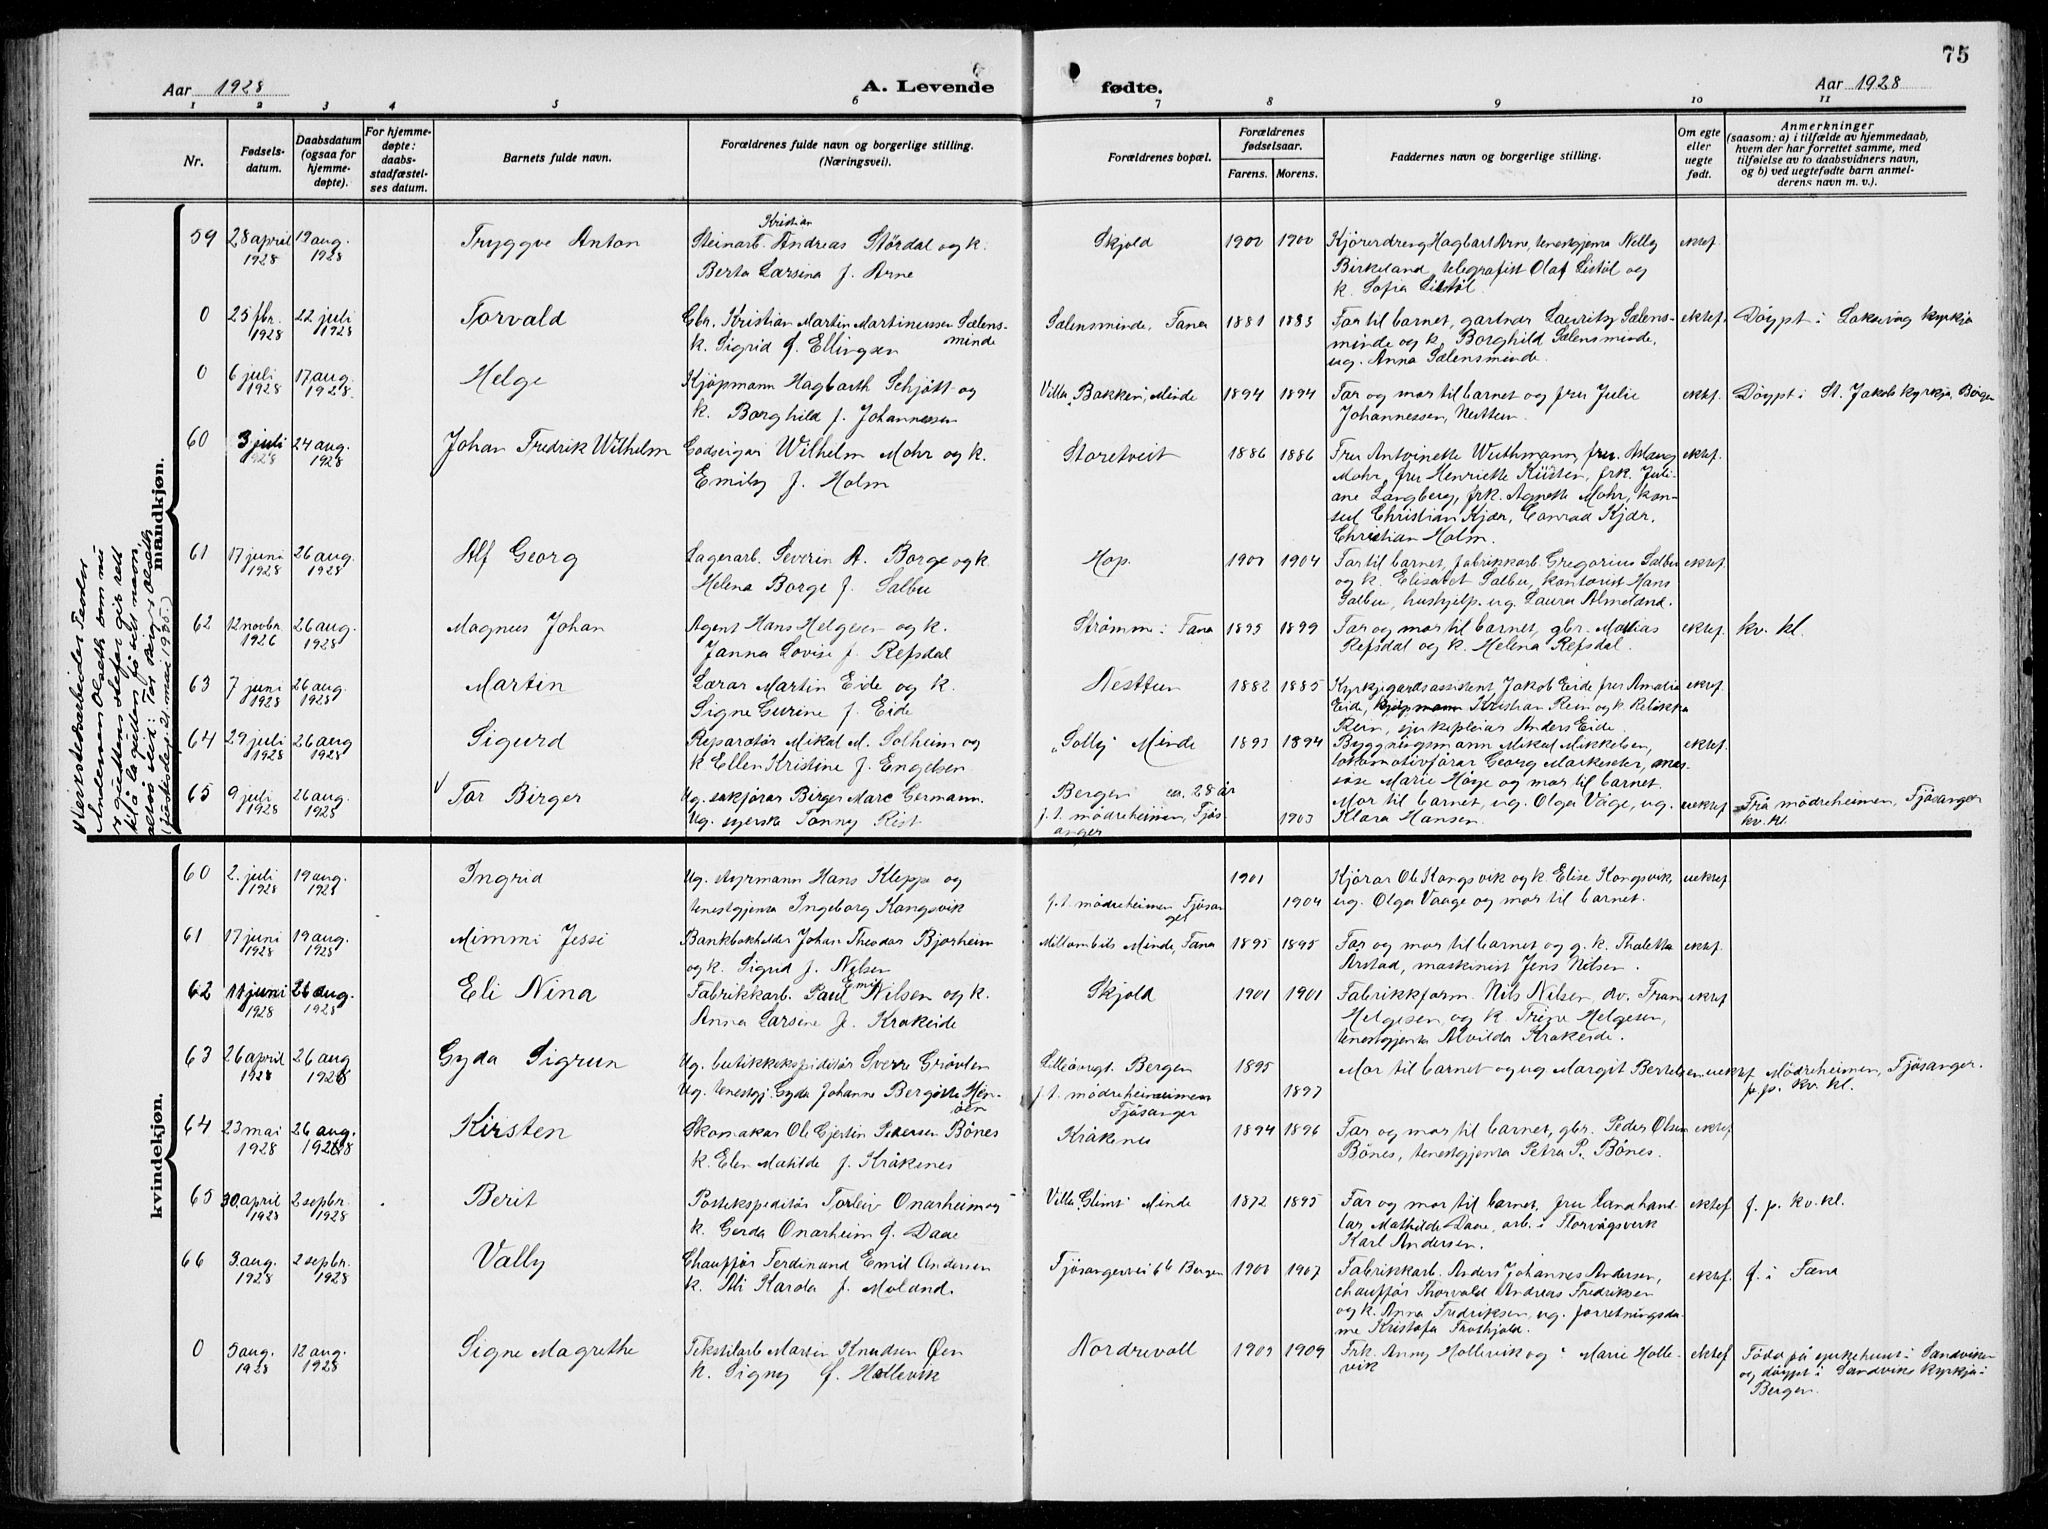 75
Aar 1928 A. Levende fødte. Aar 1928
1 2 3 4 5 6 7 8 9 10 11
Nr.
Fødsels-
datum.
Daabsdatum
(ogsaa for
hjemme-
døpte).
For hjemme-
døpte:
daabs-
stadfæstel-
ses datum.
Barnets fulde navn.
Forældrenes fulde navn og borgerlige stilling.
(Næringsvei).
Forældrenes bopæl.
Forældrenes
fødselsaar.
Farens. Morens.
Faddernes navn og borgerlige stilling.
Om egte
eller
uegte
født.
Anmerkninger
(saasom: a) i tilfælde av hjemmedaab,
hvem der har forrettet samme, med
tilføielse av to daabsvidners navn,
og b) ved uegtefødte barn anmel-
derens navn m. v.).
mandkjøn.
59 28 april 1928 19 aug. 1928 Tryggve Anton
Steinarb. Andreas Kristian Størdal og k.
Berta Larsina f. Arne
Skjold 1900 1900
Kjørerdreng Hagbart Arne, tenestgjenta Nelly
Birkeland, telegrafist Olaf Listøl og
k. Sofia Listøl.
ektef.
0 25 fbr. 1928 22 juli 1928 Torvald
Gbr. Kristian Martin Martinussen Sælens-
minde
k. Sigrid f. Ellingsen
Sælensminde, Fana 1881 1883
Far til barnet, gartnar Lauritz Sælens-
minde og k. Borghild Sælensminde,
ug. Anna Sælensminde.
ektef. Døypt i Laksevåg kyrkja
0 6 juli 1928 17 aug. 1928. Helge
Kjøpmann Hagbarth Schjøtt og
k. Borghild f. Johannessen
Villa "Bakken", Minde 1894 1894
Far og mor til barnet og fru Julie
Johannessen, Nesttun.
ektef. Døypt i St. Jakob kyrkja, Bergen
60 3 juli 1928 24 aug. 1928 Johan Fredrik Wilhelm
Godseigar Wilhelm Mohr og k.
Emily f. Holm
Storetveit 1886 1886
Fru Antoinette Wuthmann, fru Aslaug
Mohr, fru Henriette Küsten, frk. Juli-
ane Langberg, frk. Agnette Mohr, kon-
sul Christian Kjær, Conrad Kjær,
Christian Holm.
ektef.
61 17 juni 1928 26 aug. 1928 Alf Georg
Lagerarb. Severin A. Borge og k.
Helena Borge f. Salbu
Hop. 1900 1904
Far til barnet, fabrikkarb. Gregorius Salbu
og k. Elisabet Salbu, kontorist Hans
Salbu, hushjelp. ug. Laura Almeland.
ektef.
62 12 novbr 1926 26 aug. 1928 Magnus Johan
Agent Hans Helgesen og k.
Janna Lovise f. Refsdal
Strømm i Fana 1895 1899
Far og mor til barnet, gbr. Mattias
Refsdal og k. Helena Refsdal.
ektef. kv. kl.
63 7 juni 1928 26 aug. 1928 Martin
Lærar Martin Eide og k.
Signe Gurine f. Eide
Nesttun 1882 1885
Kyrkjegardsassistent Jakob Eide fru Amalia
Eide, kjøpmann Kristian Rein og k. Rebikka
Rein, sjukepleiar Anders Eide.
ektef.
64 29 juli 1928 26 aug 1928 Sigurd
Reparatør Mikal M. Solheim og
k. Ellen Kristine f. Engelsen
"Solly" Minde 1893 1894
Byggningsmann Mikal Mikkelsen,
lokomotivførar Georg Markester, mas-
søse Marie Høge og mor til barnet.
ektef.
65 9 juli 1928 26 aug. 1928 V Tor Birger
Ug. sakførar Birger Marc Germann.
Ug. syerska Jonny Rist
Bergen ca. 28 år
f. t. mødreheimen, Fjøs-
anger 1903
Mor til barnet, ug. Olga Våge, ug.
Klara Hansen.
uektef Frå mødreheimen, Fjøsanger
kv. kl.
V Verkstedsarbeider Teodor
Andersen Olseth som nu
er guttens stefar gir rett
til å la gutten få sitt navn,
altså heit: Tor Birger Olseth
(Justisdep. 21. mai 1935.)
kvindekjøn.
60 2. juli 1928 19 aug. 1928 Ingrid
Ug. Styrmann Hans Klepp og
tenestgjenta Ingeborg Kongsvik
f. t. mødreheimen Fjøsan-
ger 1901 1904
Kjørar Ole Kongsvik og k. Elise Kongsvik,
ug. Olga Vaage og mor til barnet.
uektef
61 17 juni 1928 19 aug. 1928 Mimmi Jessi
Bankbokholder Johan Theodor Bjorheim
og k. Sigrid f. Nilsen
Mellombils Minde, Fana 1895 1895
Far og mor til barnet og g. k. Thaletta
Årstad, maskinist Jens Nilsen.
ektef.
62 11 juni 1928 26 aug. 1928 Eli Nina
Fabrikkarb. Paul Emil Nilsen og k.
Anna Larsine f. Kråkeide
Skjold 1901 1901
Fabrikkform. Nils Nilsen, drv. Fran
Helgesen og k. Trine Helgesen,
tenestgjenta Alvilda Kråkeide.
ektef
63 26 april 1928 26 aug 1928 Gyda Sigrun
Ug. butikkekspeditør Sverre Grøvlen
Ug. tenestgj. Gyda Johanne Bergitte Hen-
øen
Lilleøvregt. Bergen
f. t. mødreheimen
Fjøsanger 1895 1897
Mor til barnet og ug Margit Bertelsen
uektef Mødreheimen, Fjøsanger.
f. p. kv. kl.
64 23 mai 1928 26 aug. 1928 Kirsten
Skomakar Ole Gjertin Pedersen Bønes
k. Elen Matilde f. Kråkenes
Kråkenes 1894 1896
Far og mor til barnet, gbr. Peder Olsen
Bønes, tenestgjenta Petra P. Bønes.
ektef
65 30. april 1928 2 sepbr. 1928 Berit
Postekspeditør Torleiv Onarheim og
k. Gerda Onarheim f. Daae
Villa "Glimt" Minde 1872 1895
Far og mor til barnet, fru landhand-
lar Mathilde Daae, arb. i Storvågsverk
Karl Andersen.
ektef f. p. kv. kl.
66 3. aug. 1928 2 sepbr. 1928 Vally
Chauffør Ferdinand Emil Andersen
k. Ali Karola f. Moland.
Fjøsangervei 66 Bergen 1900 1907
Fabrikkarb. Anders Johannes Andersen,
chauffør Thorvald Andreas Fredriksen
og k. Anna Fredriksen, ug. forretningsda-
me Kristofa Frosthjold.
ektef. f. i Fana
0 5 aug. 1928 12 aug. 1928 Signe Magrethe
Tekstilarb Martin Knudsen Øen
k. Signy f. Hollevik
Nordrevoll 1903 1909
Frk. Anny Hollevik og " Marie Holle-
vik
ektef Fødd på sjukehuset i Sandviken
og døypt i Sandviks kyrkja i
Bergen.